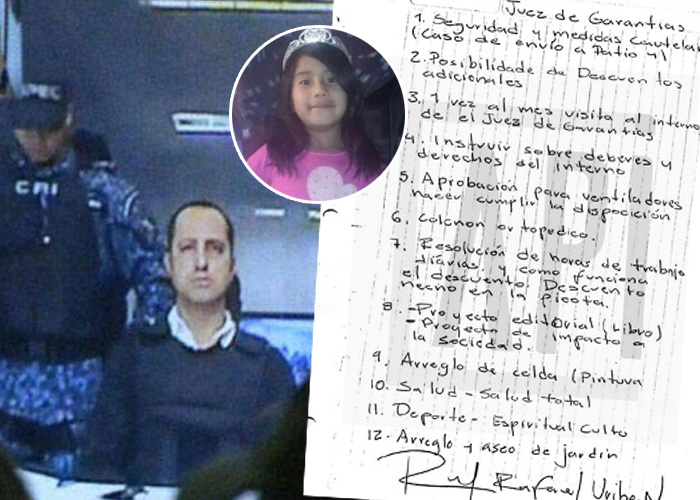 CRI
Juez de Garantias
1. Seguridad y medidas Cautela
(caso de envío a Patio 4)
2. Posibilidade de Descuentos
adicionales
3. 1 vez al mes visita al interno
de el Juez de Garantías
4. Instruir sobre deberes y
derechos del interno
5. Aprobación para ventiladores
hacer cumplir la disposición
6. Colchon ortopedico.
7. Resolución de horas de trabajo
diarias. y como funciona
el descuento. Descuento
hecho en la picota.
8. - Proyecto editorial (Libro)
- Proyecto de impacto a
la sociedad.
9. Arreglo de celda (Pintura
10. Salud - Salud total
11. Deporte - Espiritual Culto
12. Arreglo y aseo de jardin
Rafael Uribe N